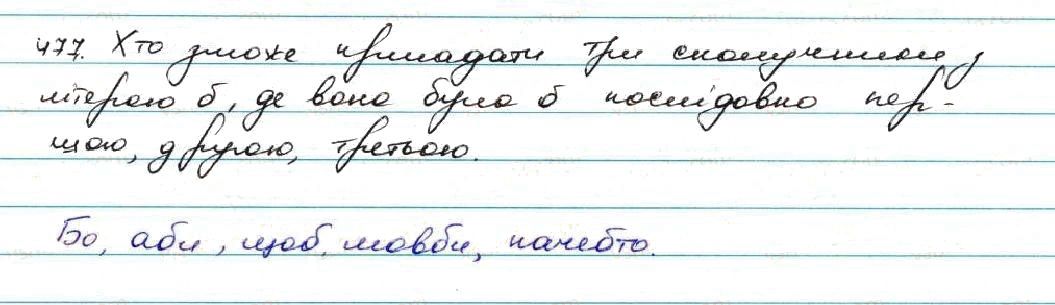 477. Хто зможе пригадати три сполучники з
літерою б, де вона була б послідовно пер-
шою, другою, третьою.
Бо, аби, щоб, мовби, начебто.